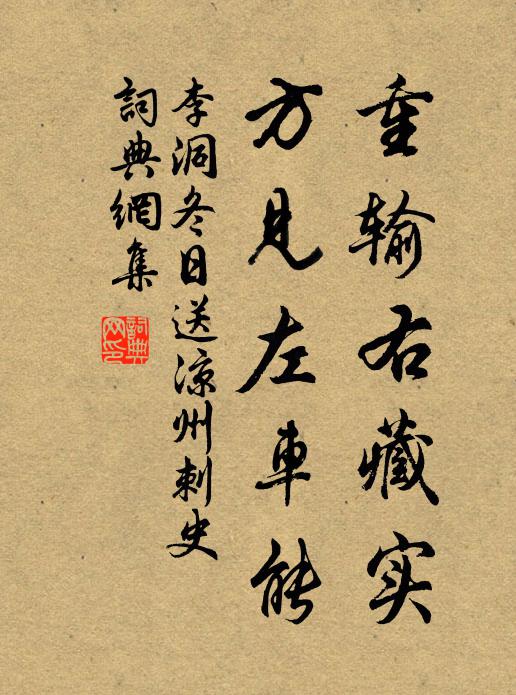 重输右藏实
方见左車能
李洞冬日送凉州刺史
詞典網集
詞典
网印